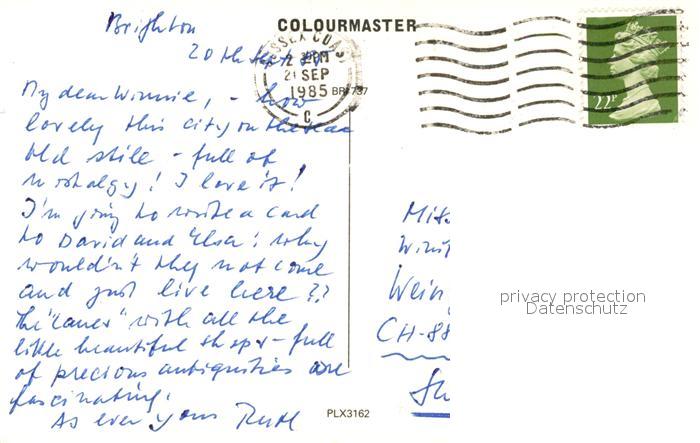 Brighton
COLOURMASTER
20th Sept 85
SSEX COAS
2 PM
21 SEP
1985
C
BR7737
22P
My dear Winnie, - how
lovely this city on the sea
old stile - full of
nostalgy! I love it!
I'm going to write a card
to David and Elsa: why
wouldn't they not come
and just live here??
The "Lanes" with all the
little beautiful shops - full
of precious antiquities are
fascinating!
As ever yours Ruth
Wein
CH-88
privacy protection
Datenschutz
PLX3162